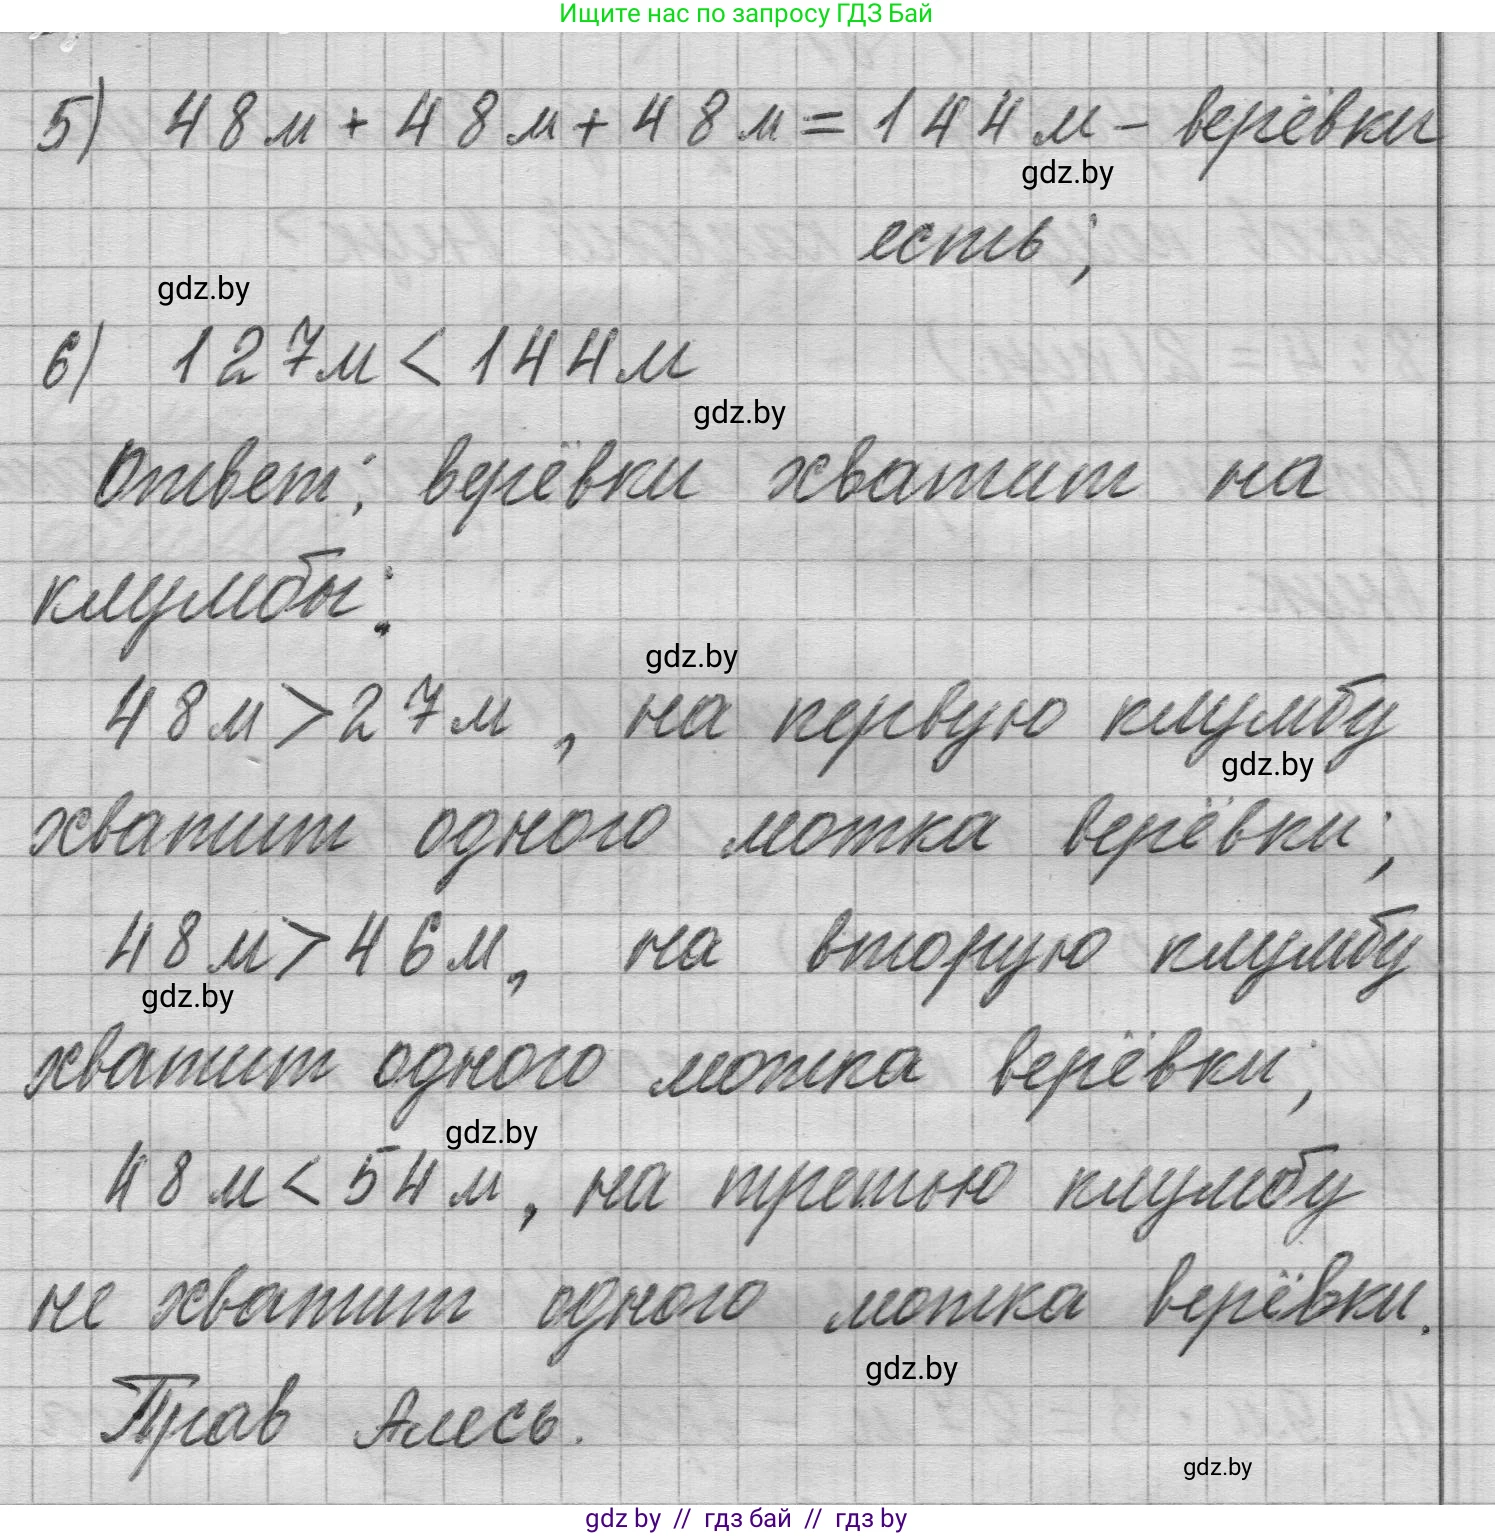 Ищите нас по запросу ГДЗ Бай
5) 48 м + 48 м + 48 м = 144 м - верёвки
gdz.by
есть;
gdz.by
6) 127 м < 144 м
gdz.by
Ответ: верёвки хватит на
клумбы:
gdz.by
48 м > 27 м, на первую клумбу
gdz.by
хватит одного мотка верёвки;
48 м > 46 м, на вторую клумбу
gdz.by
хватит одного мотка верёвки;
gdz.by
48 м < 54 м, на третью клумбу
не хватит одного мотка верёвки.
gdz.by
Прав Алесь.
gdz.by
gdz by // гдз бай // гдз by